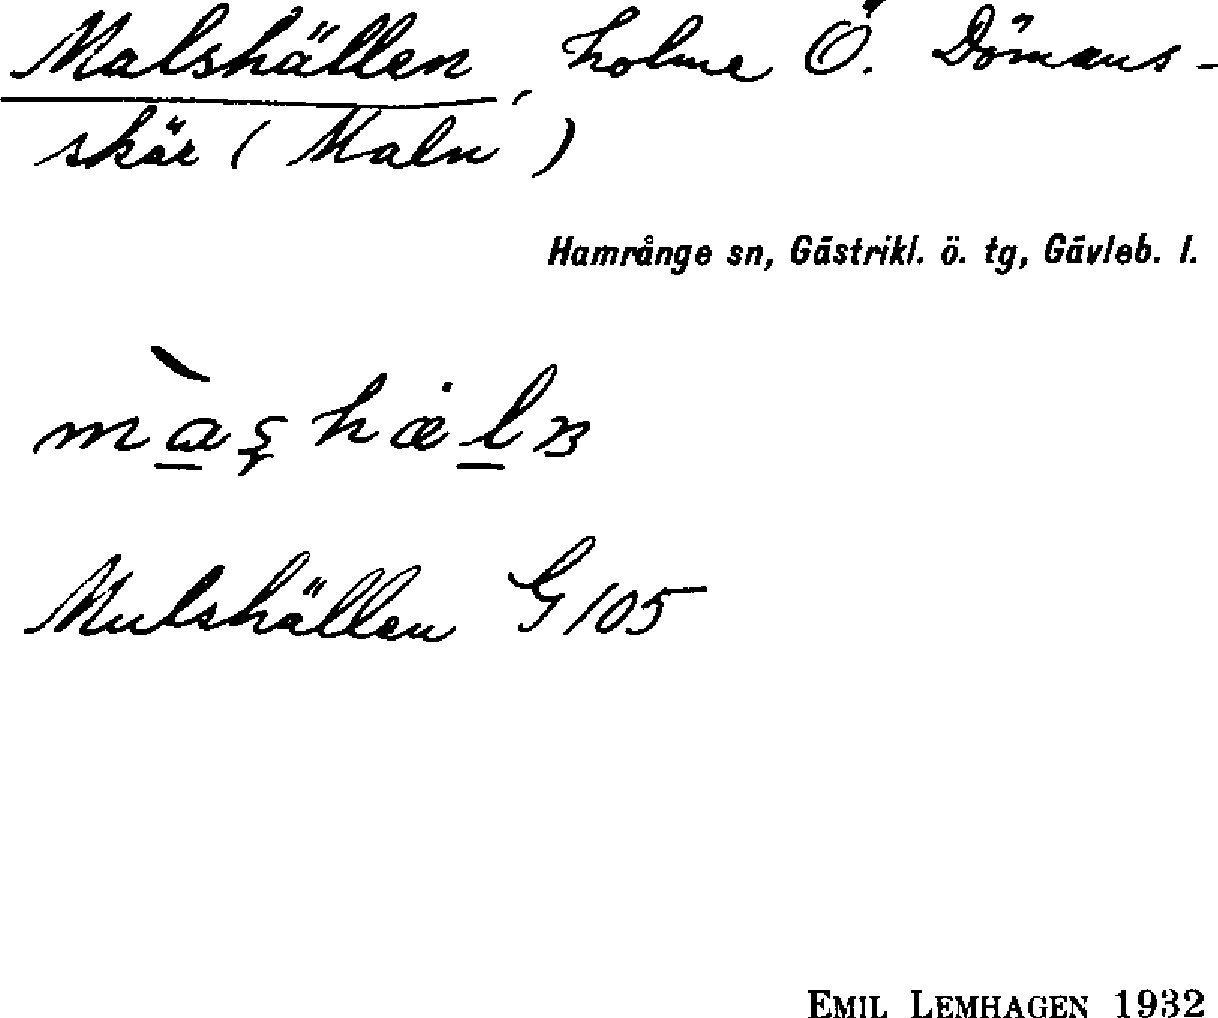 Malshällen, holme Ö. Dömans-
skär (Maln)
Hamrånge sn, Gästrikl. ö. tg, Gävleb. l.
Mulshällen G 105
EMIL LEMHAGEN 1932